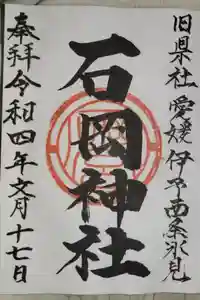 旧県社 愛媛 伊予西条氷見
石岡神社
奉拝 令和四年文月十七日